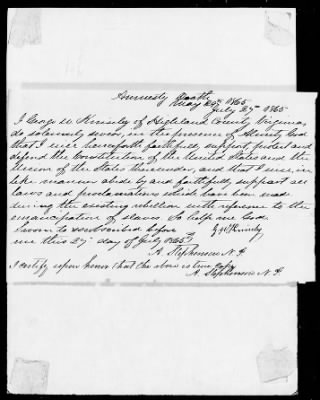 Amnesty Oath
May 29th 1865
July 27th 1865
I George W Kinsley of Highland County Virginia,
do solemnly swear, in the presence of Almighty God
that I will henceforth faithfully support protect and
defend the Constitution of the United States and the
Union of the States thereunder, and that I will, in
like manner abide by and faithfully support all
laws and proclamations which have been made
during the existing rebellion with reference to the
emancipation of slaves. So help me God.
Sworn to & subscribed before
me this 27th day of July 1865
A. Stephenson N. P.
I certify upon honor that the above is true copy
A. Stephenson N. P.